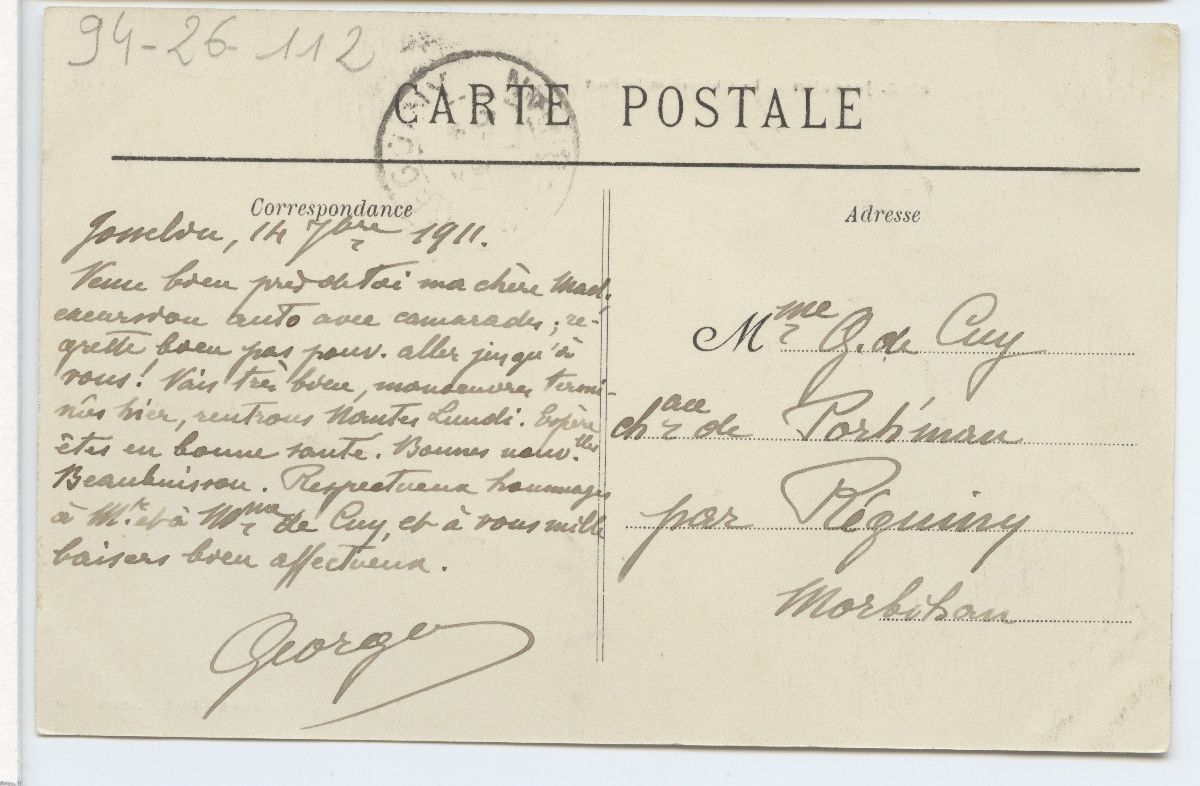 94-26-112
CARTE POSTALE
Correspondance
Adresse
Josselin, 14 7bre 1911.
Venu bien près de toi ma chère Mad.
excursion auto avec camarades ; re-
grette bien pas pouv. aller jusqu'à
vous ! Vais très bien, manoeuvres termi-
nées hier, rentrons Nantes Lundi. Espère
êtes en bonne santé. Bonnes nouv.lles
Beaubuisson. Respectueux hommages
à Mr. et à Mme de Cuy, et à vous mille
baisers bien affectueux.
George
Mme G. de Cuy
chau de Porh'man
par Réguiny
Morbihan